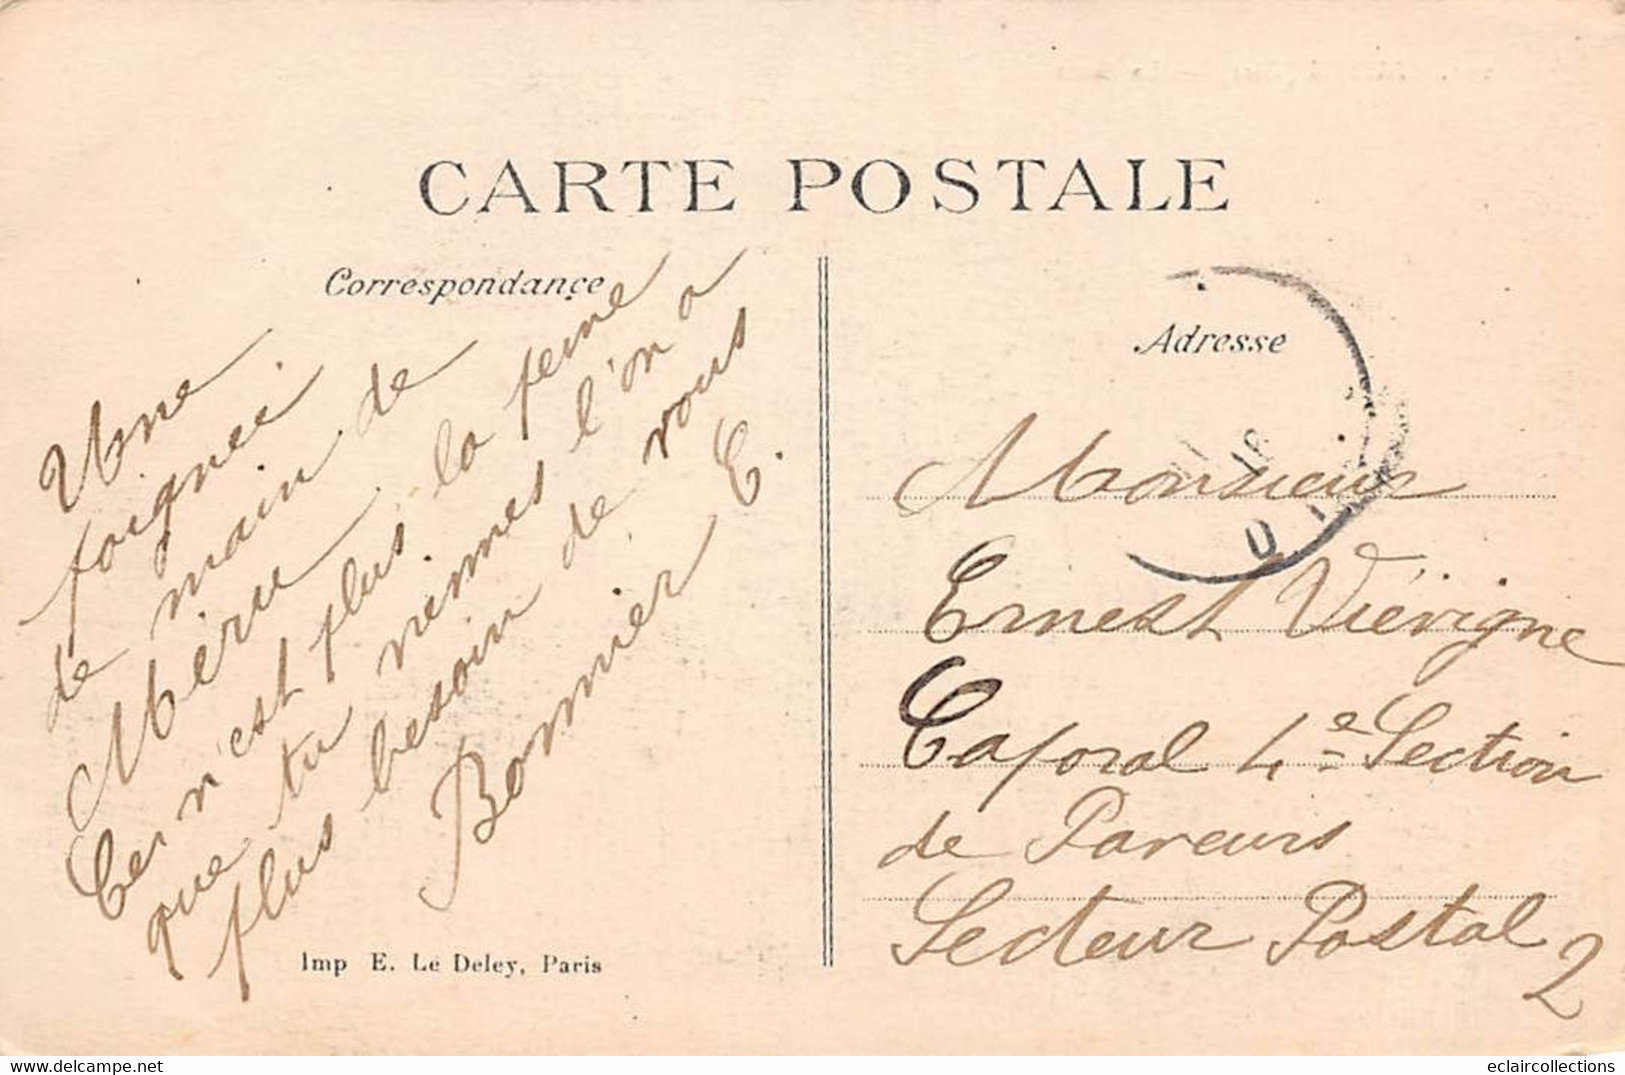 CARTE POSTALE
Correspondance
Une
poignée
de main de
Méru
Ce n'est plus la peine
que tu nimes l'on a
plus besoin de vous
Bonnier E.
Imp E. Le Deley, Paris
Adresse
Monsieur
Ernest Viévigne
Caporal 4e Section
de Pareurs
Secteur Postal
2
eclaircollections